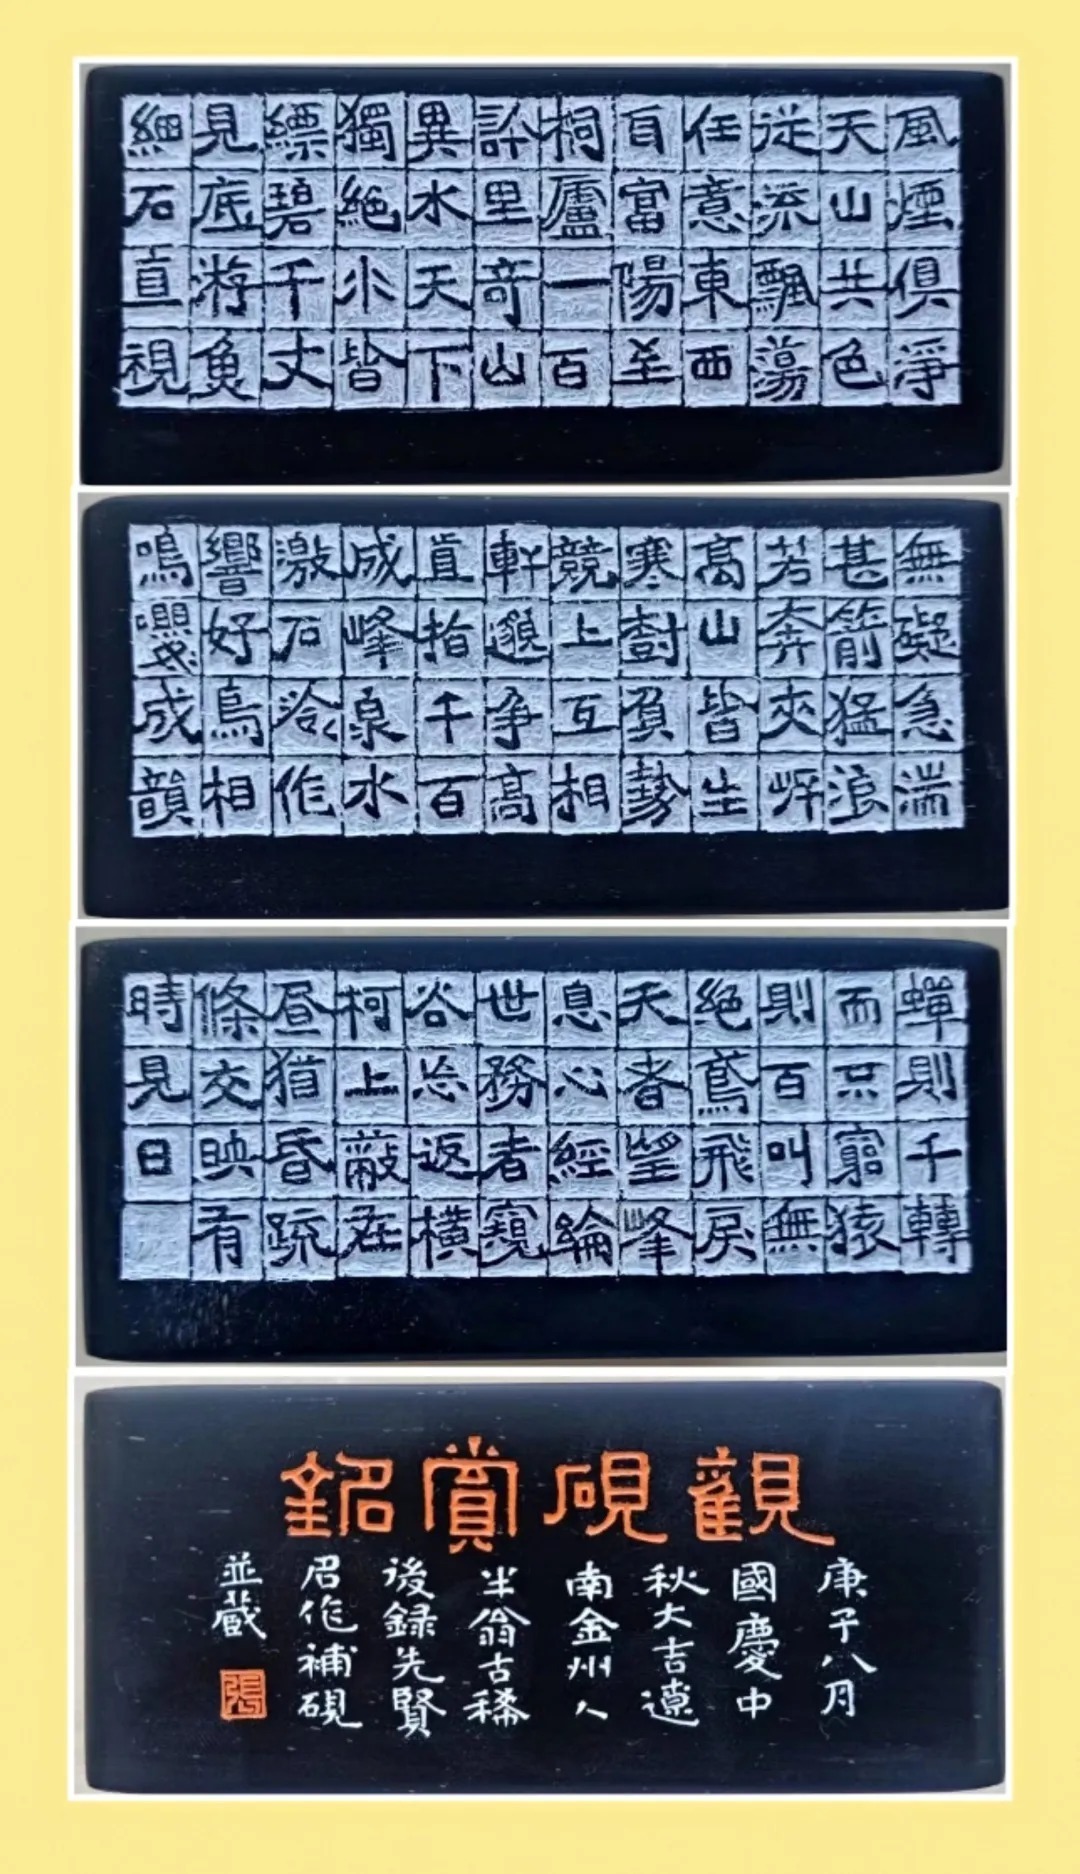 風煙俱淨
天山共色
從流飄蕩
任意東西
自富陽至
桐廬一百
許里奇山
異水天下
獨絕水皆
縹碧千丈
見底游魚
細石直視
無礙急湍
甚箭猛浪
若奔夾岸
高山皆生
寒樹負勢
競上互相
軒邈爭高
直指千百
成峰泉水
激石泠作
響好鳥相
鳴嚶々成韻
蟬則千轉
而不窮猿
則百叫無
絕鳶飛戾
天者望峰
息心經綸
世務者窺
谷忘返橫
柯上蔽在
晝猶昏疏
條交映有
時見日
觀硯賞銘
庚子八月
國慶中
秋大吉遼
南金州人
半翁古稀
後録先賢
作補硯
並藏
張